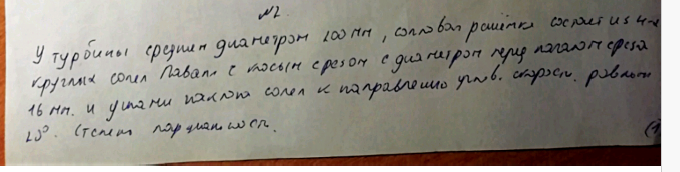 №2.
У турбины средним диаметром 200 мм, сопловая решётка состоит из 4-х
круглых сопел Лаваля с косым срезом с диаметром перед началом среза
16 мм. и углами наклона сопел к направлению скорост. равным
20°. Степень парциальност.